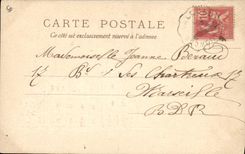 CARTE POSTALE
Ce côté est exclusivement réservé à l'adresse
Mademoiselle Jeanne
17 Bd des Chartreux 17
Marseille
B.D.R